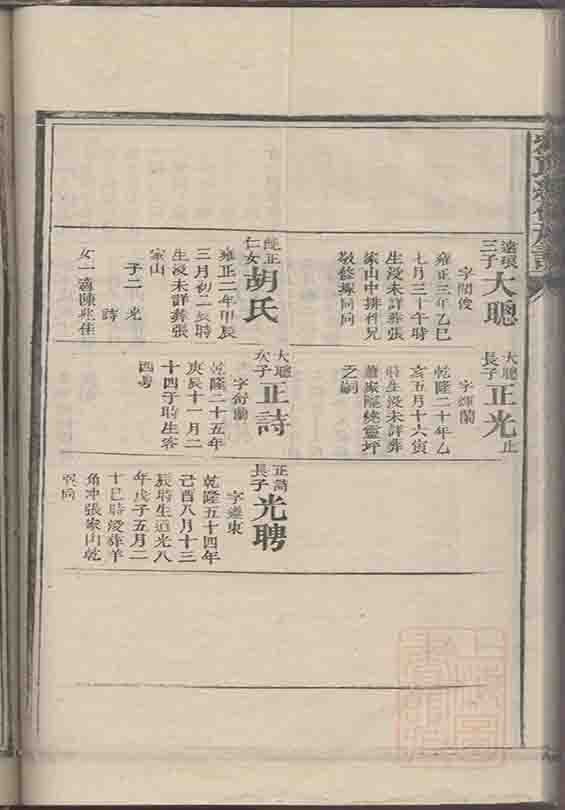 三子
大聰
字閣俊
雍正三年乙巳
七月三十午時
生没未詳葬張
家山中排利兄
敬修塚同向
純正
仁女
胡氏
雍正二年甲辰
三月初二辰時
生没未詳葬張
家山
子二
光
詩
女一適陳兆佳
大聰
長子
正光
止
字輝蘭
乾隆二十年乙
亥五月十六寅
時生没未詳葬
蕭家隘統靈坪
之嗣
大聰
次子
正詩
字蘭
乾隆二十五年
庚辰十一月二
十四子時生客
西粵
正詩
長子
光聘
字繼東
乾隆五十四年
己酉八月十三
辰時生道光八
年戊子五月二
十巳時没葬羊
角冲張家山乾
巽向